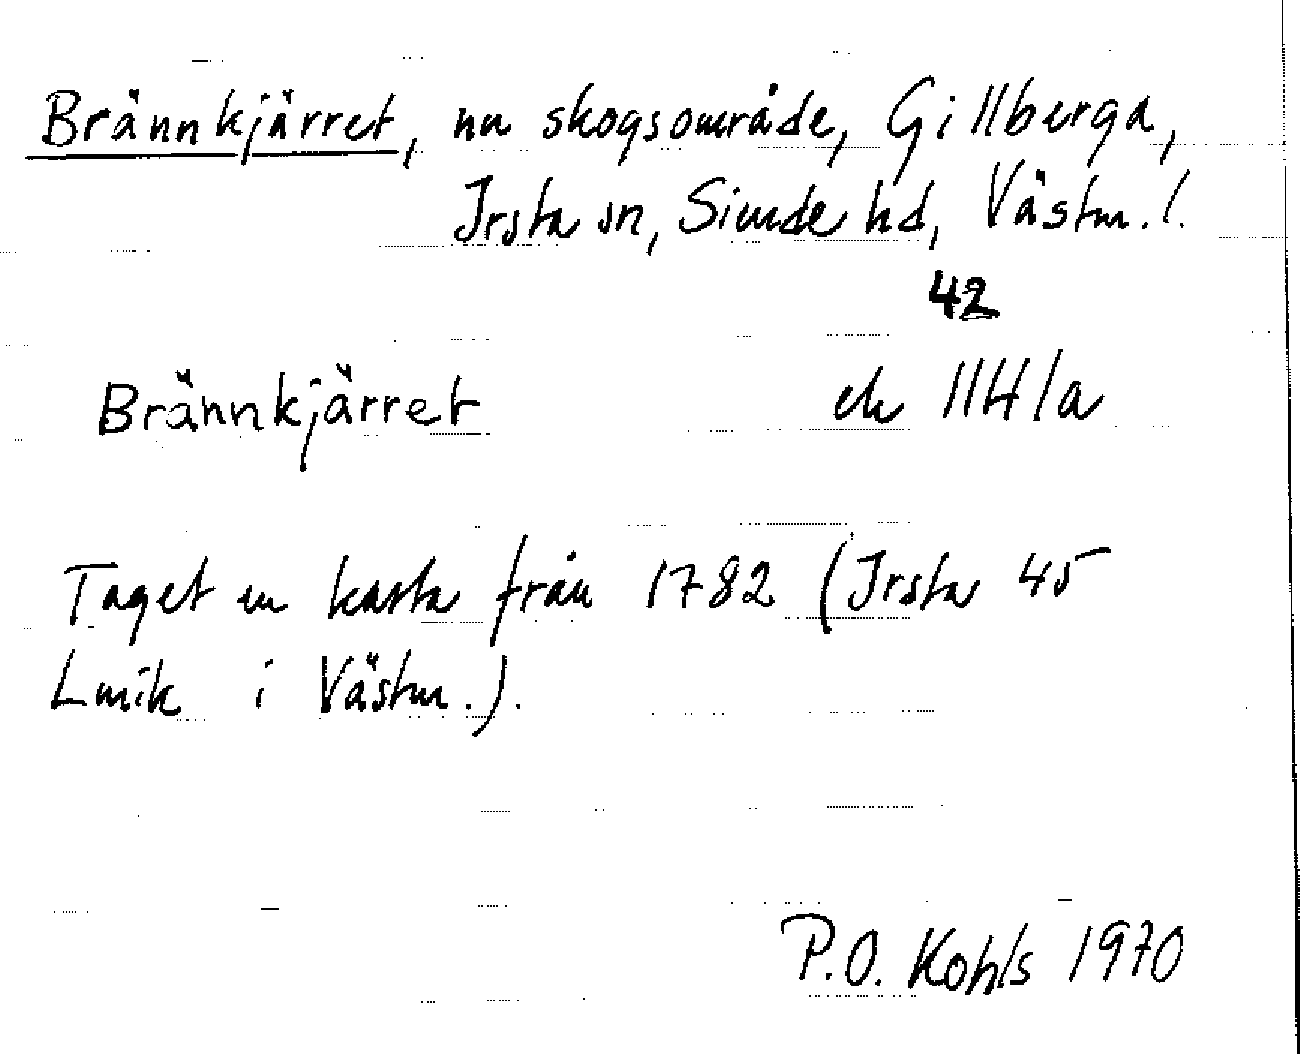 Brännkjärret, nu skogsområde, Gillberga,
Irsta sn, Siende hd, Västm. l.
42
Brännkjärret ek 11H/a
Taget ur karta från 1782 (Irsta 45
Lmik i Västm.).
P.O. Kohls 1970